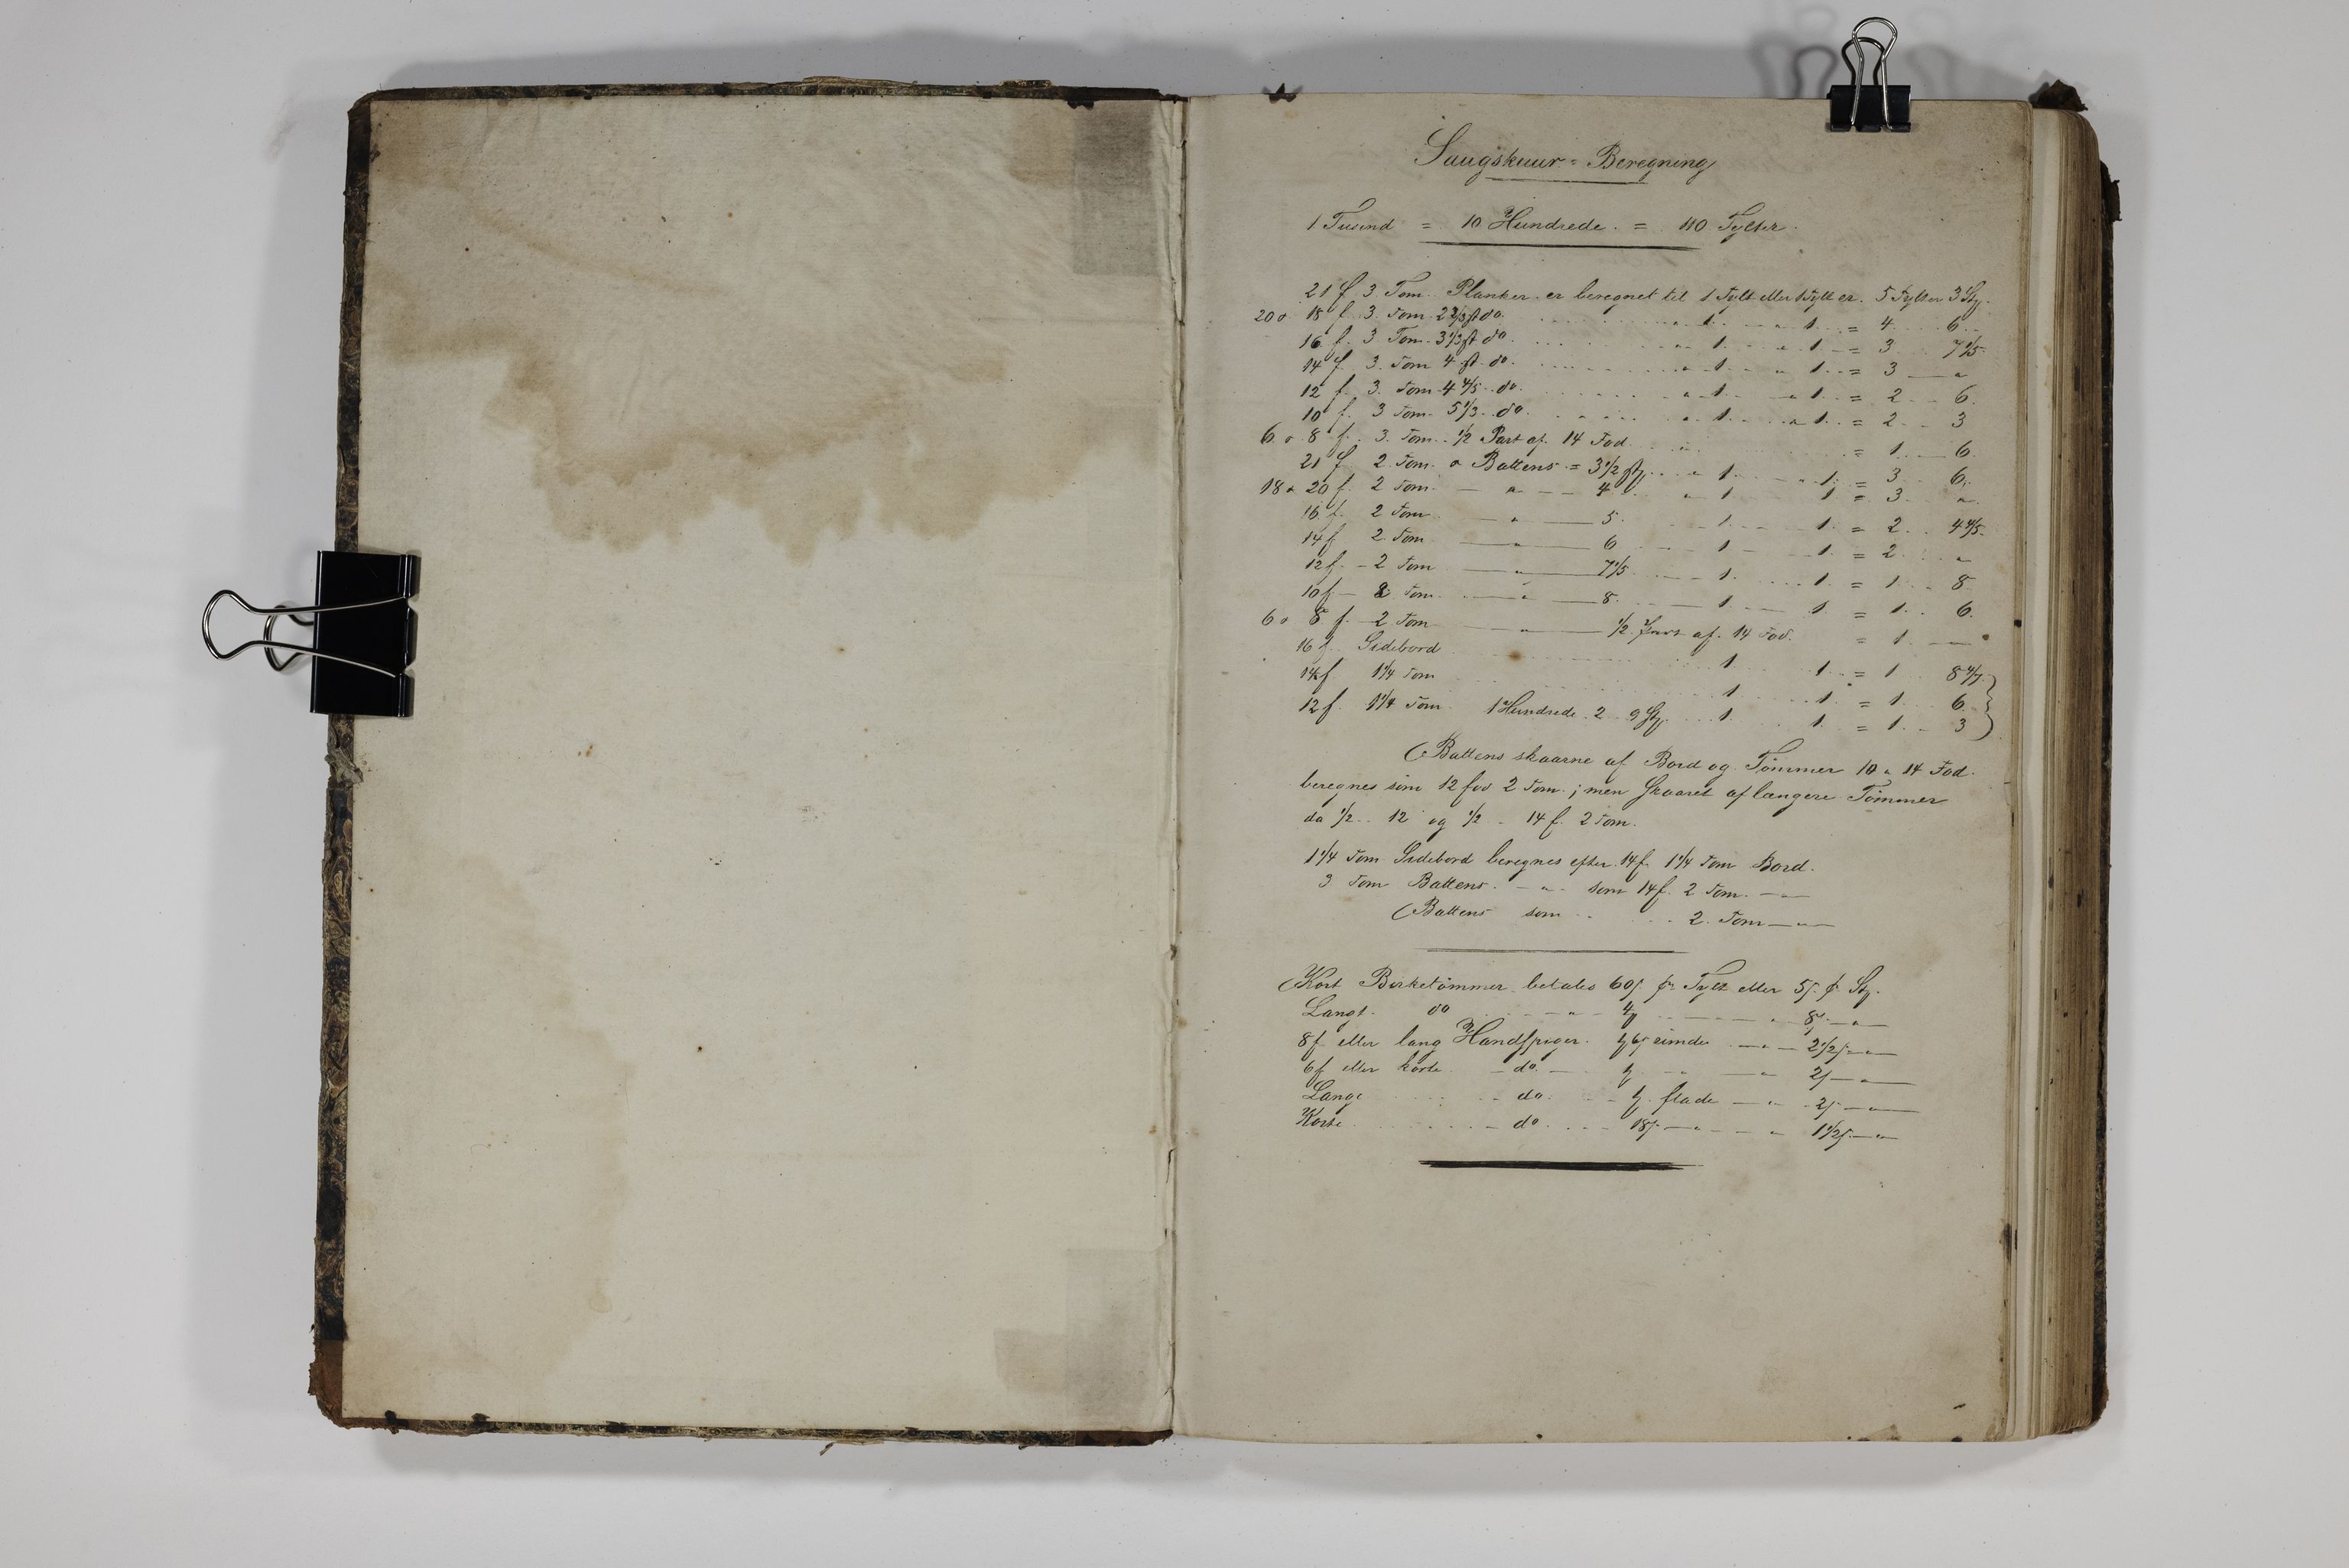 Saugskuur-Beregning
1 Tusend = 10 Hundrede = 110 Tylter.
21 f 3 Tom Planker er beregnet til 1 Tylt eller 1 Tylt er 5 Tylter 3 Stz.
20 a 18 f. 3. Tom 2 2/3 st do. " 1. " 1. = 4. 6.
16 f. 3 Tom 3 1/3 st do " 1. " 1 = 3 7 1/5
14 f 3. Tom 4 st. do. " 1. " 1. = 3 "
12 f. 3. Tom 4 4/5 do. " 1. " 1. = 2 6.
10 f. 3 Tom 5 1/3 do. " 1. " 1. = 2 3
6 a 8 f. 3. Tom 1/2 Part af 14 Fod " = 1. 6.
21 f 2 Tom. a Battens = 3 1/2 st. " 1. 1. = 3 6.
18 a 20 f. 2 Tom " 4 " 1 1 = 3 "
16 f. 2 Tom " 5. 1. 1. = 2 4 4/5
14 f 2. Tom " 6 1 1. = 2 "
12 f. 2 Tom " 7 1/5 1. 1. = 1. 8
10 f 2 Tom " 8. 1. 1. = 1. 6.
6 a 8 f. 2 Tom " 1/2 Part af. 14 Fod. = 1.
16 f. Sidebord 1 1. = 1 8 4/7
14 f 1 1/4 Tom 1. 1. = 1. 6
12 f. 1 1/4 Tom 1 Hundrede 2 9 Stz. 1. 1. = 1. 3
Battens skaarne af Bord og Tömmer 10 a 14 Fod.
beregnes som 12 fod 2 Tom.; men skaaret af længere Tömmer
da 1/2 12 og 1/2 14 f. 2 Tom.
1 1/4 Tom Sidebord beregnes efter 14 f. 1 1/4 Tom Bord.
3 Tom Battens " som 14 f. 2 Tom. "
Battens som 2. Tom "
Kort Birketömmer betales 60 pr Tylt eller 5 pr Stz.
Langt do " 8 "
8 f eller lang Handspiger rimde " 2 1/2 "
6 f eller korte do. " " 2 "
Lange do. flade " 2 "
Korte do. 18 " " 1 1/2 "